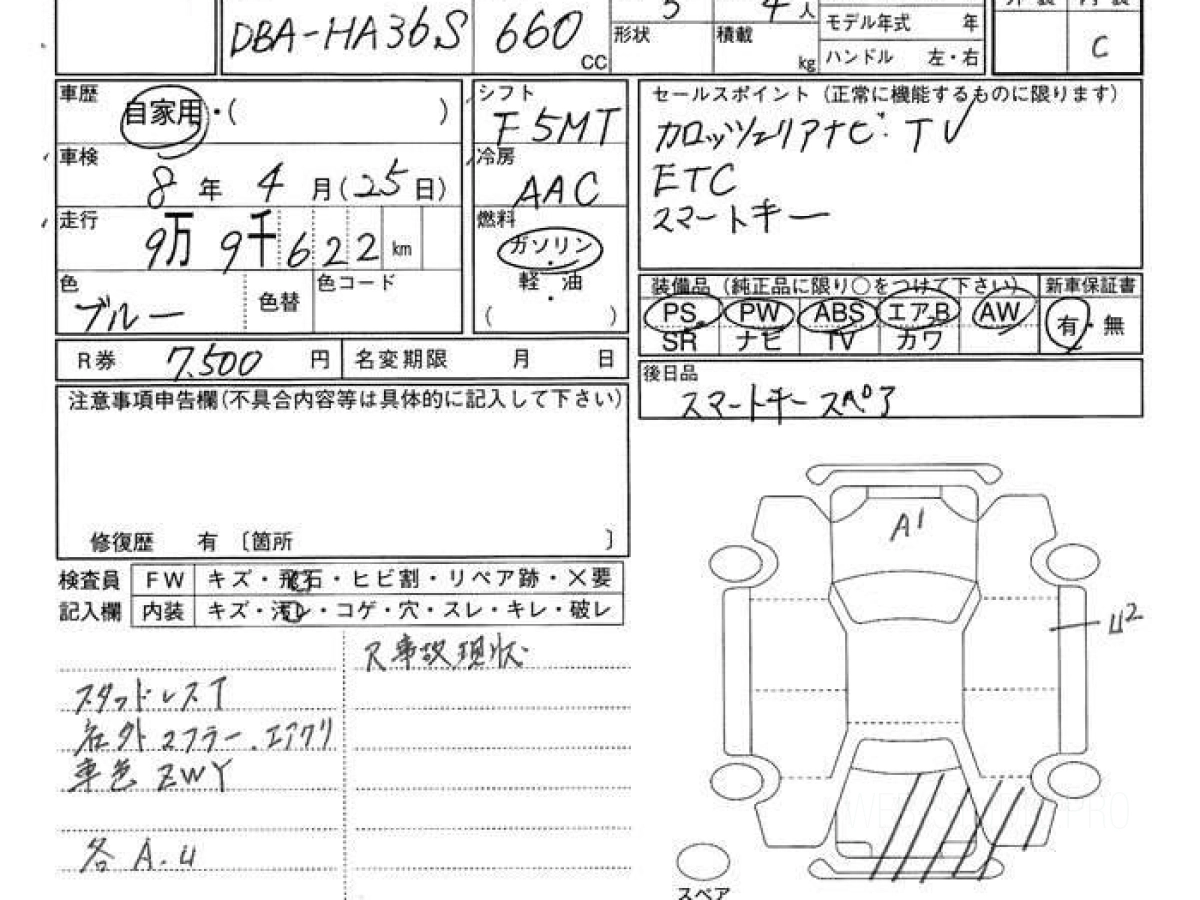 5 4人 外装 内装
DBA-HA36S 660 CC 形状 積載 kg モデル年式 年
ハンドル 左・右 C
車歴 自家用・( )
シフト F5MT
セールスポイント (正常に機能するものに限ります)
カロッツェリアナビ・TV
ETC
スマートキー
車検 8年 4月(25日)
冷房 AAC
走行 9万 9千 6 2 2 km
燃料 ガソリン・軽・油 ( )
色 ブルー 色替 色コード
装備品 (純正品に限り○をつけて下さい) 新車保証書
PS PW ABS エアB AW 有・無
SR ナビ TV カワ
R券 7,500 円 名変期限 月 日
後日品
スマートキースペア
注意事項申告欄(不具合内容等は具体的に記入して下さい)
修復歴 有 〔箇所 〕
検査員 FW キズ・飛石・ヒビ割・リペア跡・×要
記入欄 内装 キズ・汚レ・コゲ・穴・スレ・キレ・破レ
事故現状
スタッドレスT
社外マフラー.エアクリ
車色 ZWY
各 A.U
A1
U2
スペア